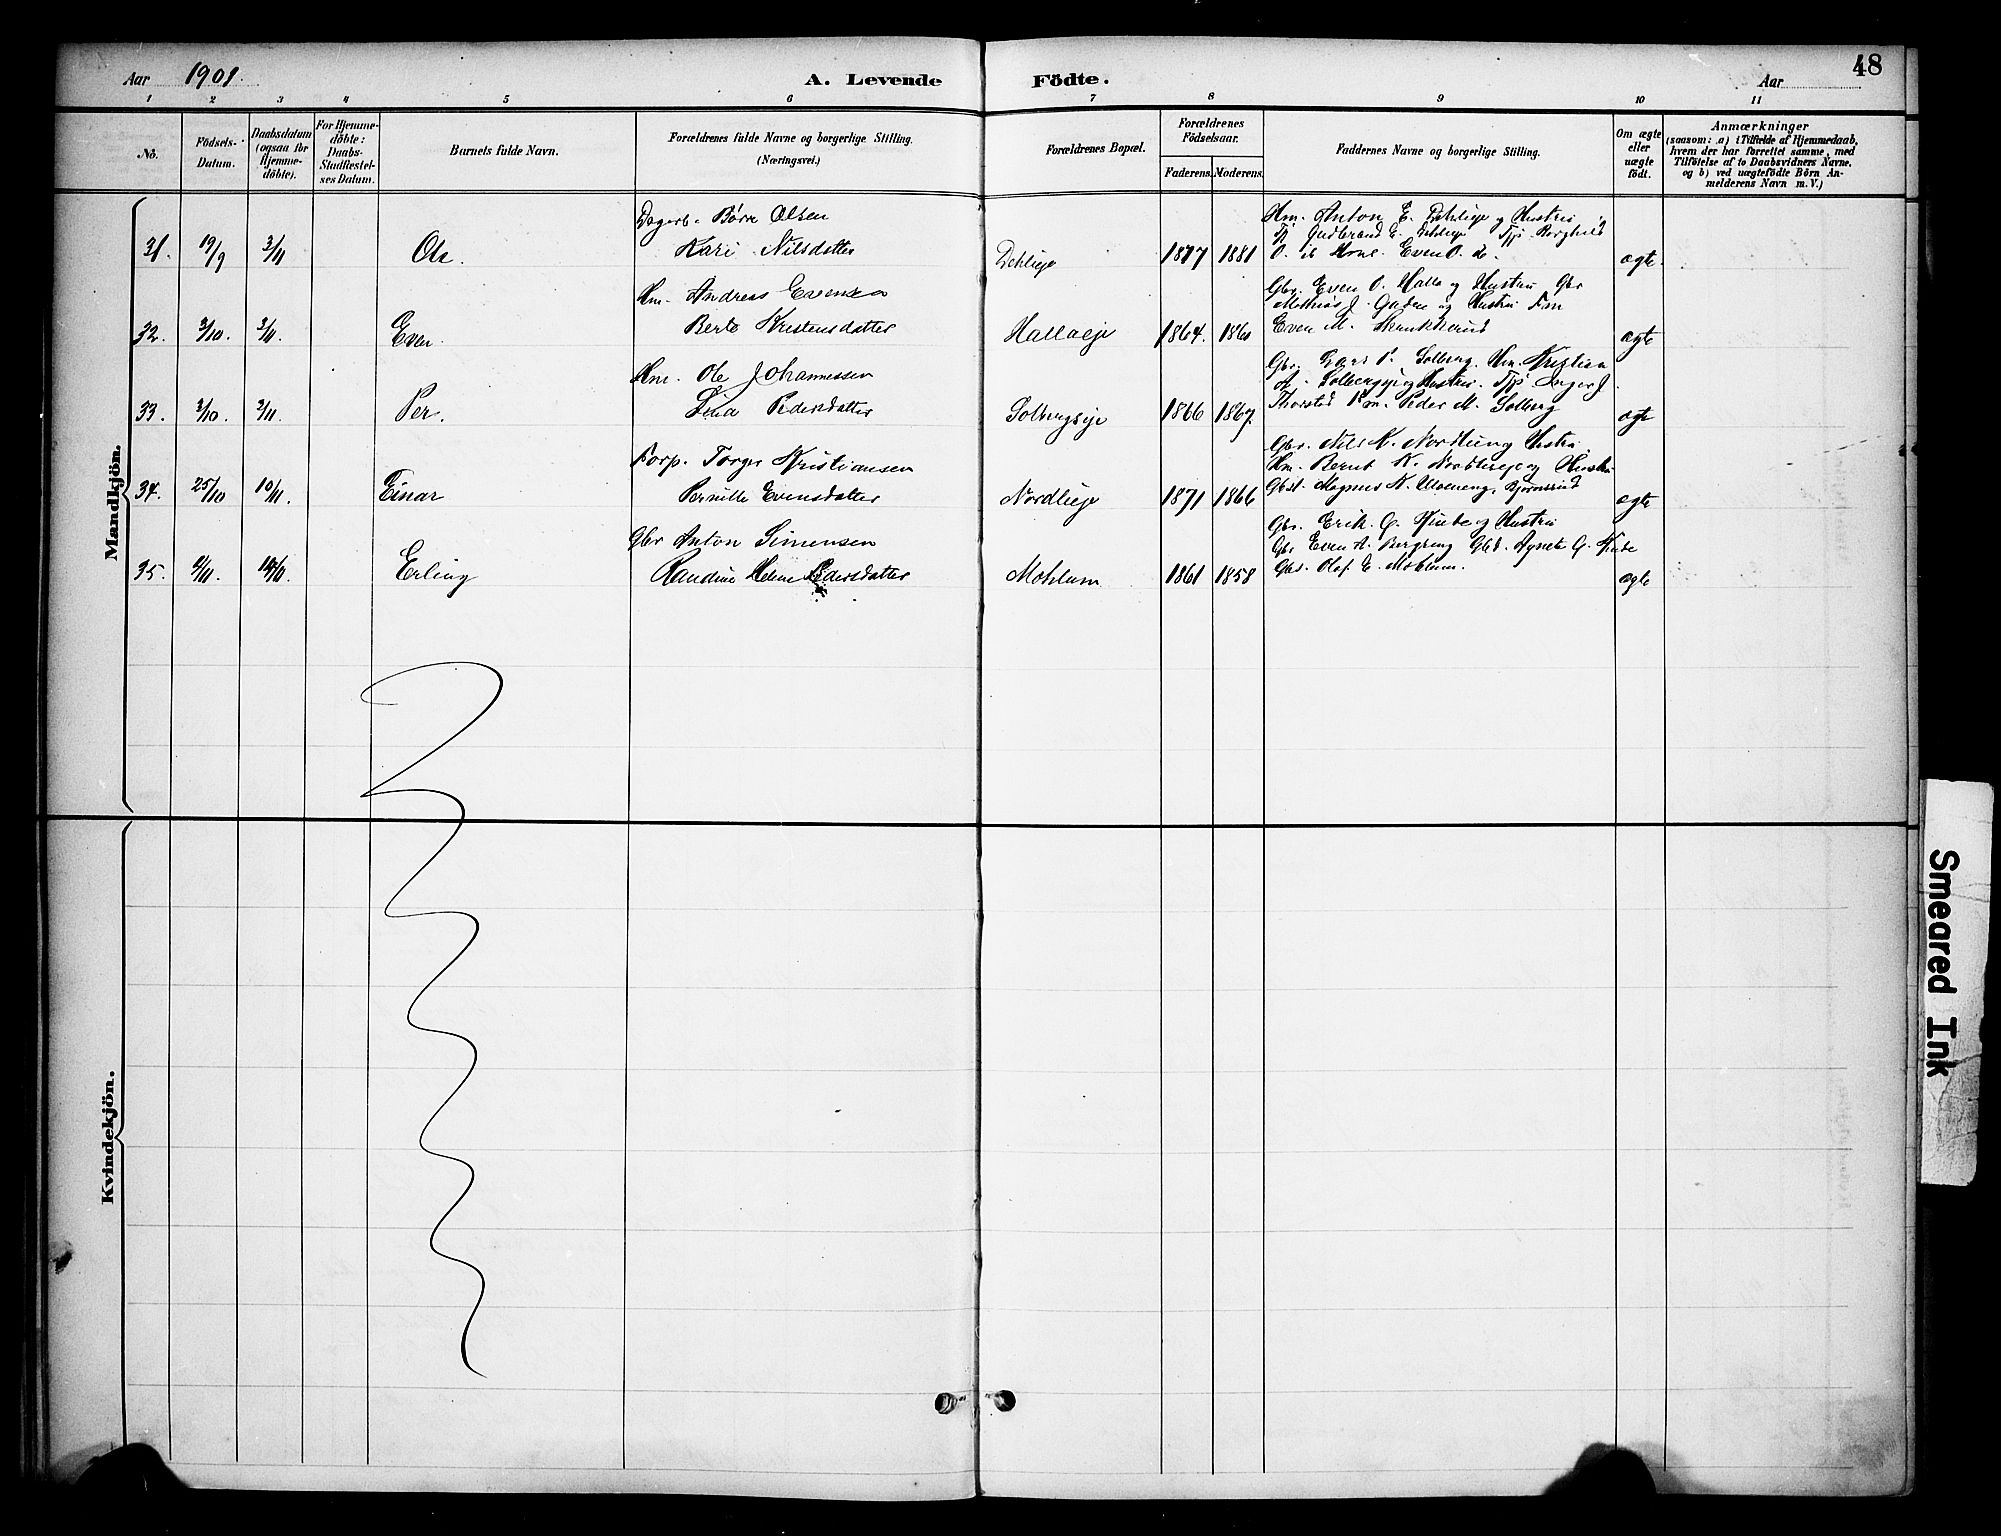 Aar 1901.
A. Levende Födte.
Aar
48
1 2 3 4 5 6 7 8 9 10 11
No.
Födsels-Datum.
Daabsdatum (ogsaa for Hjemme-döbte).
For Hjemme-döbte: Daabs-Stadfestel-ses Datum.
Barnets fulde Navn.
Forældrenes fulde Navne og borgerlige Stilling.
(Næringsvei.)
Forældrenes Bopæl.
Forældrenes Födselsaar.
Faderens. Moderens.
Faddernes Navne og borgerlige Stilling.
Om ægte eller uægte födt.
Anmærkninger
(saasom: a) i Tilfælde af Hjemmedaab,
hvem der har forrettet samme, med
Tilföielse af to Daabsvidners Navne,
og b) ved uægtefödte Börn An-
melderens Navn m. V.)
Mandkjön.
31. 19/9 3/11 Ole. Dagarb. Børre Olsen
Kari Nilsdatter
Dehlieje 1877 1881
Hm. Anton E. Dehlieje og Hustru
Tj. Gudbrand E. Dehlieje Tjp. Borghild
O. ib Even O. ib.
ægte.
32. 3/10. 3/11. Even. Hm. Andreas Evensen
Berte Kristensdatter
Hallaeje 1864. 1860
Gbr. Even O. Halla og Hustru Gbr
Mathias J. og Hustru Fm
Even M.
ægte
33. 2/10. 3/11. Per. Hm. Ole Johannessen
Lina Pedersdatter
Solbergseje 1866 1867.
Gbr. Lars P. Solberg, Hm. Kristian
A. Solbergseje og Hustru. Tjp. Inger J.
Thorstad Fm. Peder M. Solberg
ægte
34. 25/10 10/11. Einar Forp. Torger Kristiansen
Pernille Evensdatter
Nordlieje 1871 1866
Gbr. Nils K. Nordli og Hustru
Hm. Bernt K. Nordlieje og Hustru
Gbst. Magnus N.
ægte
35. 6/11. Erling Gbr Anton Simensen
Randine Helene Pedersdatter
Mohlum 1861 1858
Gbr. Erik G. og Hustru
Gbr Even A. Gbd. Agnete G.
Gbs. Olaf E. Mohlum.
ægte
Kvindekjön.
Smeared Ink